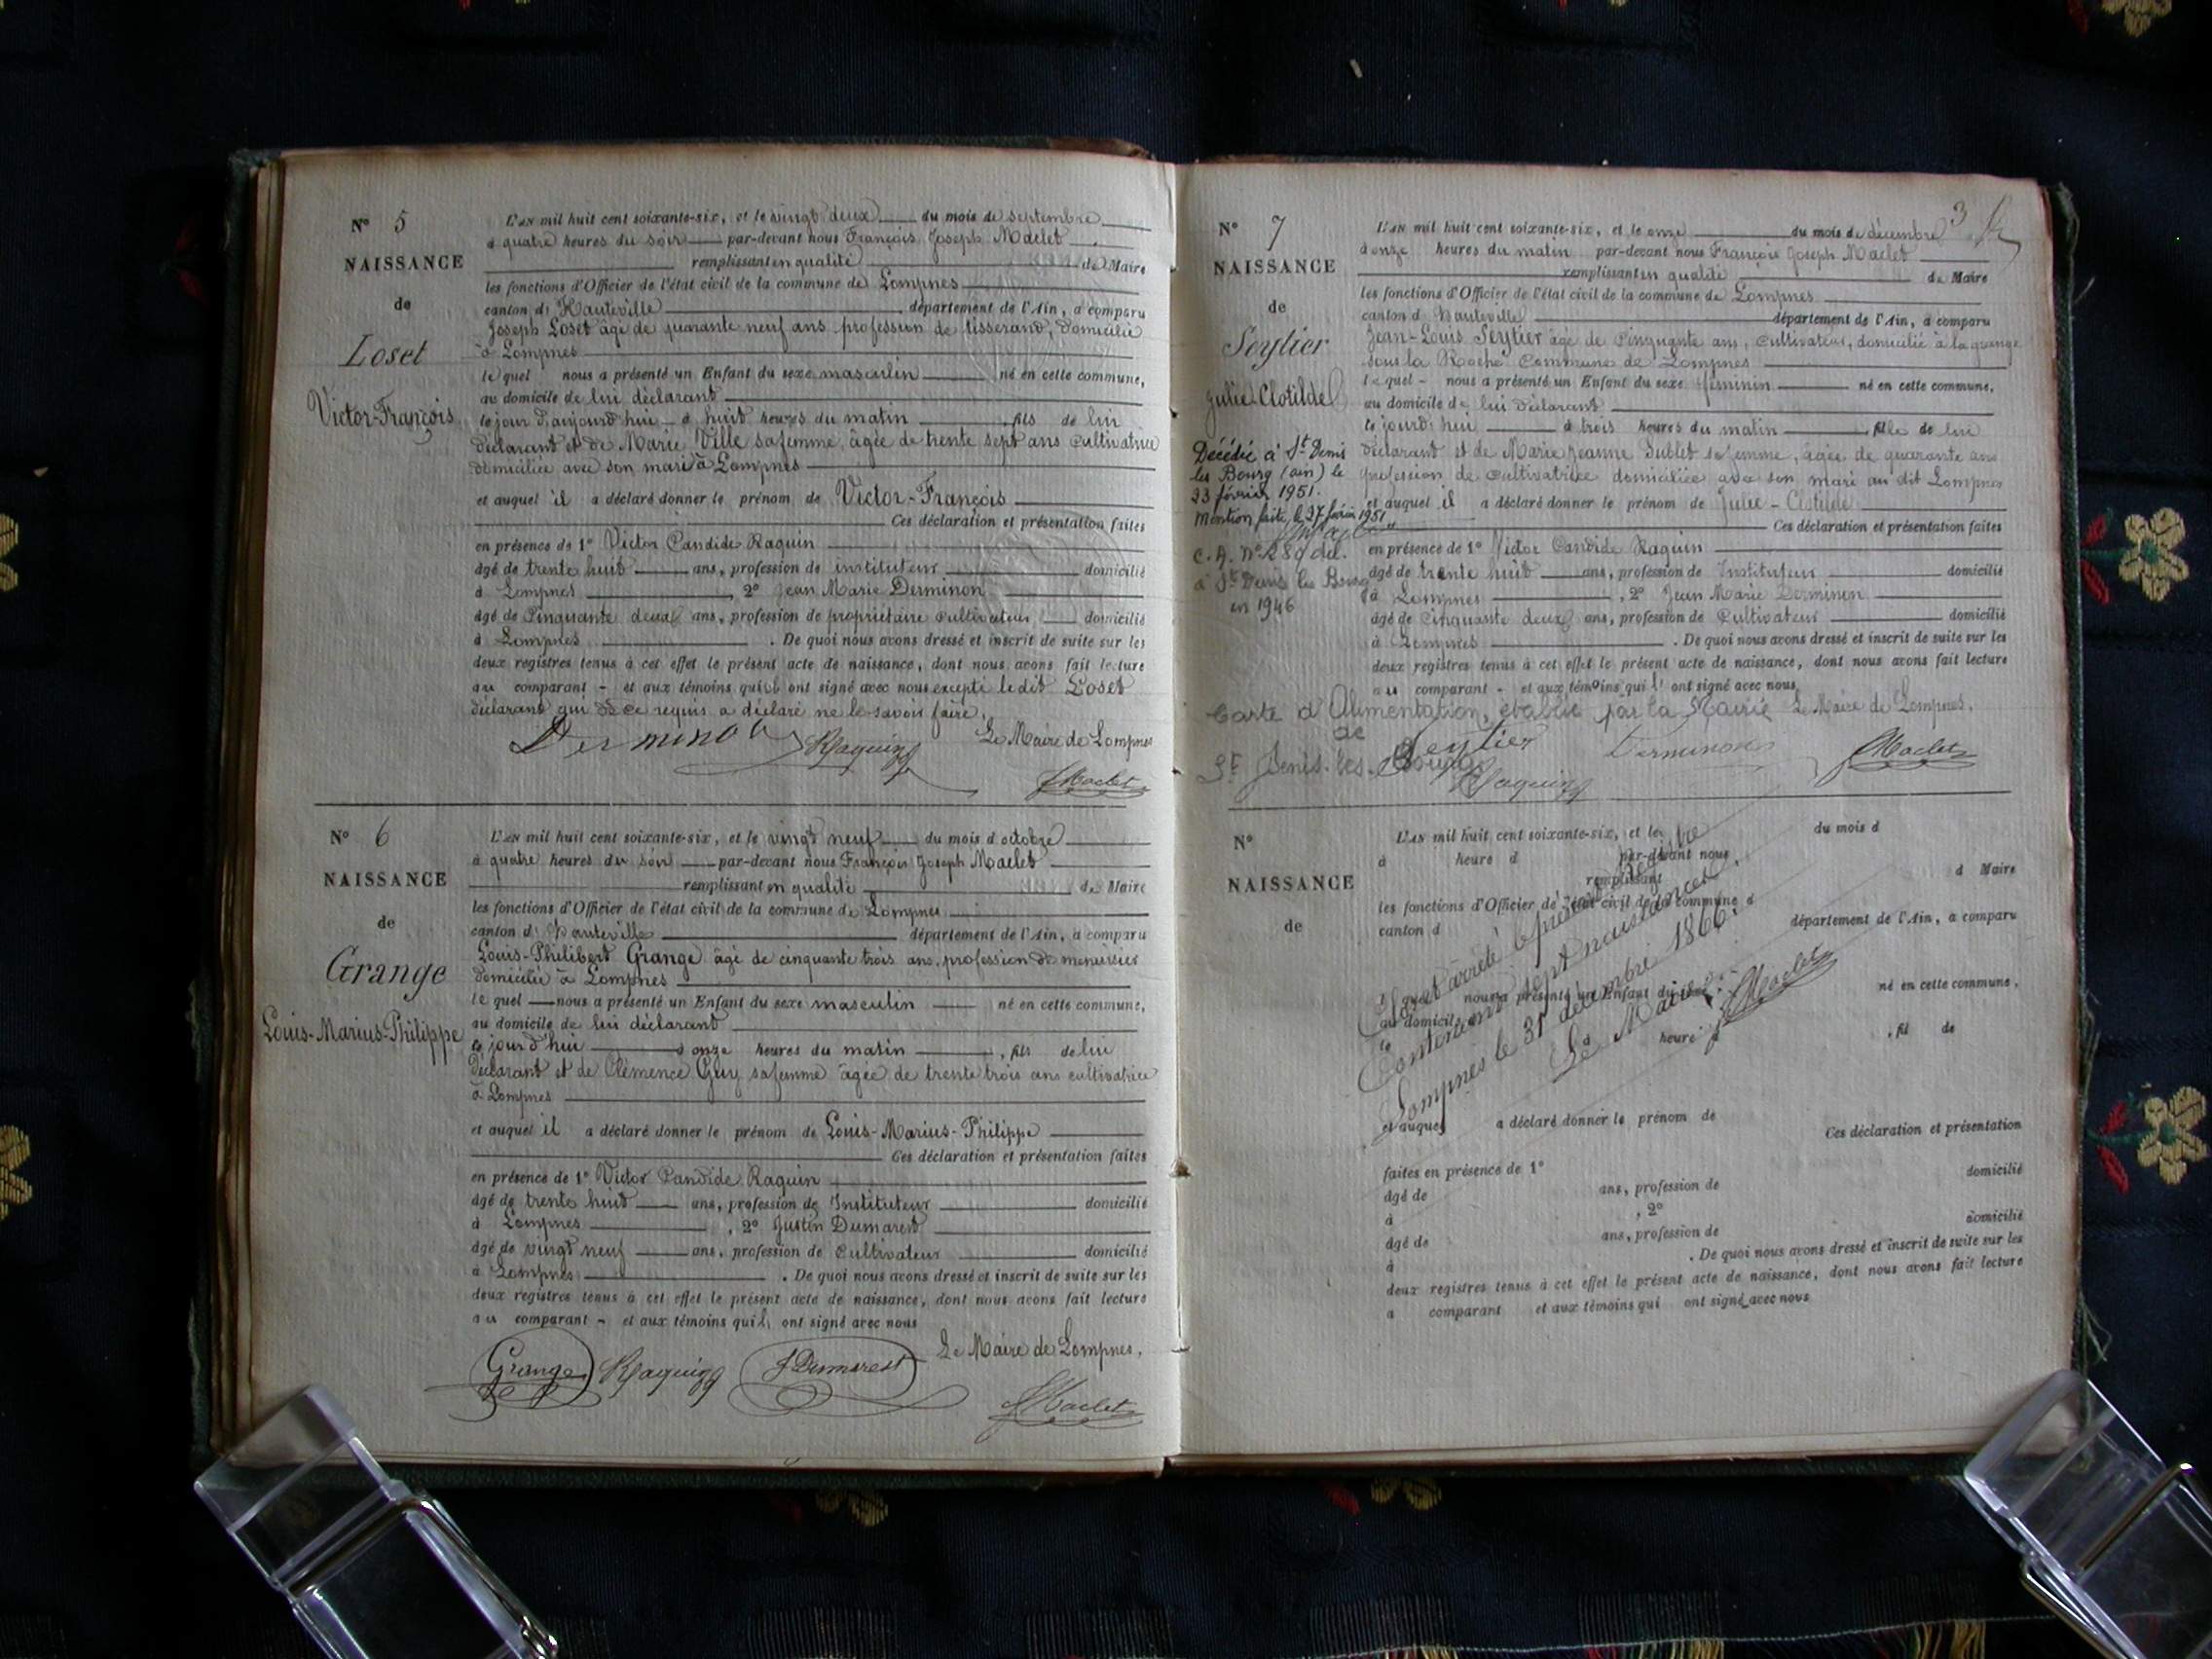 N° 5
NAISSANCE
de
Loset
Victor-François
L'AN mil huit cent soixante-six, et le vingt deux du mois de septembre
à quatre heures du soir par-devant nous François Joseph Maclet
remplissant en qualité de Maire
les fonctions d'Officier de l'état civil de la commune de Lompnes
canton d' Hauteville département de l'Ain, a comparu
Joseph Loset âgé de quarante neuf ans profession de tisserand, domicilié
à Lompnes
le quel nous a présenté un Enfant du sexe masculin né en cette commune,
au domicile de lui déclarant
le jour d'aujourd'hui à huit heures du matin, fils de lui
déclarant et de Marie Ville sa femme, âgée de trente sept ans cultivatrice
domiciliée avec son mari à Lompnes
et auquel il a déclaré donner le prénom de Victor-François
Ces déclaration et présentation faites
en présence de 1° Victor Candide Raquin
âgé de trente huit ans, profession de instituteur domicilié
à Lompnes, 2° Jean Marie Derminon
âgé de Cinquante deux ans, profession de propriétaire cultivateur domicilié
à Lompnes. De quoi nous avons dressé et inscrit de suite sur les
deux registres tenus à cet effet le présent acte de naissance, dont nous avons fait lecture
au comparant - et aux témoins qui l' ont signé avec nous excepté le dit Loset
déclarant qui de ce requis a déclaré ne le savoir faire.
Le Maire de Lompnes
Derminon Raquin Maclet
N° 6
NAISSANCE
de
Grange
Louis-Marius-Philippe
L'AN mil huit cent soixante-six, et le vingt neuf du mois d octobre
à quatre heures du soir par-devant nous François Joseph Maclet
remplissant en qualité de Maire
les fonctions d'Officier de l'état civil de la commune de Lompnes
canton d' Hauteville département de l'Ain, a comparu
Louis-Philibert Grange âgé de cinquante trois ans, profession de menuisier
domicilié à Lompnes
le quel nous a présenté un Enfant du sexe masculin né en cette commune,
au domicile de lui déclarant
le jour d'hui à onze heures du matin, fils de lui
déclarant et de Clémence Guy sa femme âgée de trente trois ans cultivatrice
à Lompnes
et auquel il a déclaré donner le prénom de Louis-Marius-Philippe
Ces déclaration et présentation faites
en présence de 1° Victor Candide Raquin
âgé de trente huit ans, profession de Instituteur domicilié
à Lompnes, 2° Justin Dumarest
âgé de vingt neuf ans, profession de Cultivateur domicilié
à Lompnes. De quoi nous avons dressé et inscrit de suite sur les
deux registres tenus à cet effet le présent acte de naissance, dont nous avons fait lecture
au comparant - et aux témoins qui l' ont signé avec nous
Le Maire de Lompnes,
Grange Raquin J Dumarest Maclet
3
N° 7
NAISSANCE
de
Seytier
Julie Clotilde
Décédée à St Denis
les Bourg (ain) le
23 février 1951.
Mention faite, le 27 février 1951
C. A. N° 289 dél.
à St Denis les Bourg
en 1946
L'AN mil huit cent soixante-six, et le onze du mois de décembre
à onze heures du matin par-devant nous François Joseph Maclet
remplissant en qualité de Maire
les fonctions d'Officier de l'état civil de la commune de Lompnes
canton d Hauteville département de l'Ain, a comparu
Jean-Louis Seytier âgé de Cinquante ans, cultivateur, domicilié à la grange
sous la Roche Commune de Lompnes
le quel - nous a présenté un Enfant du sexe féminin né en cette commune,
au domicile de lui déclarant
le jourd'hui à trois heures du matin, fille de lui
déclarant et de Marie Jeanne Sublet sa femme, âgée de quarante ans
profession de cultivatrice domiciliée avec son mari au dit Lompnes
et auquel il a déclaré donner le prénom de Julie - Clotilde
Ces déclaration et présentation faites
en présence de 1° Victor Candide Raquin
âgé de trente huit ans, profession de Instituteur domicilié
à Lompnes, 2° Jean Marie Derminon
âgé de cinquante deux ans, profession de Cultivateur domicilié
à Lompnes. De quoi nous avons dressé et inscrit de suite sur les
deux registres tenus à cet effet le présent acte de naissance, dont nous avons fait lecture
au comparant - et aux témoins qui l' ont signé avec nous
Carte d'Alimentation, établie par la Mairie Le Maire de Lompnes,
de
St Denis-les-Bourg
Seytier Raquin Derminon Maclet
N°
NAISSANCE
de
L'AN mil huit cent soixante-six, et le du mois d
à heure d par-devant nous
remplissant d Maire
les fonctions d'Officier de l'état civil de la commune d
canton d département de l'Ain, a comparu
quel nous a présenté un Enfant du sexe né en cette commune,
au domicile
le à heure d, fil de
et auquel a déclaré donner le prénom de
Ces déclaration et présentation
faites en présence de 1° domicilié
âgé de ans, profession de
à, 2° domicilié
âgé de ans, profession de
à. De quoi nous avons dressé et inscrit de suite sur les
deux registres tenus à cet effet le présent acte de naissance, dont nous avons fait lecture
a comparant et aux témoins qui ont signé avec nous
Clos et arrêté le présent registre
Contenant sept naissances.
Lompnes le 31 décembre 1866.
Le Maire
Maclet